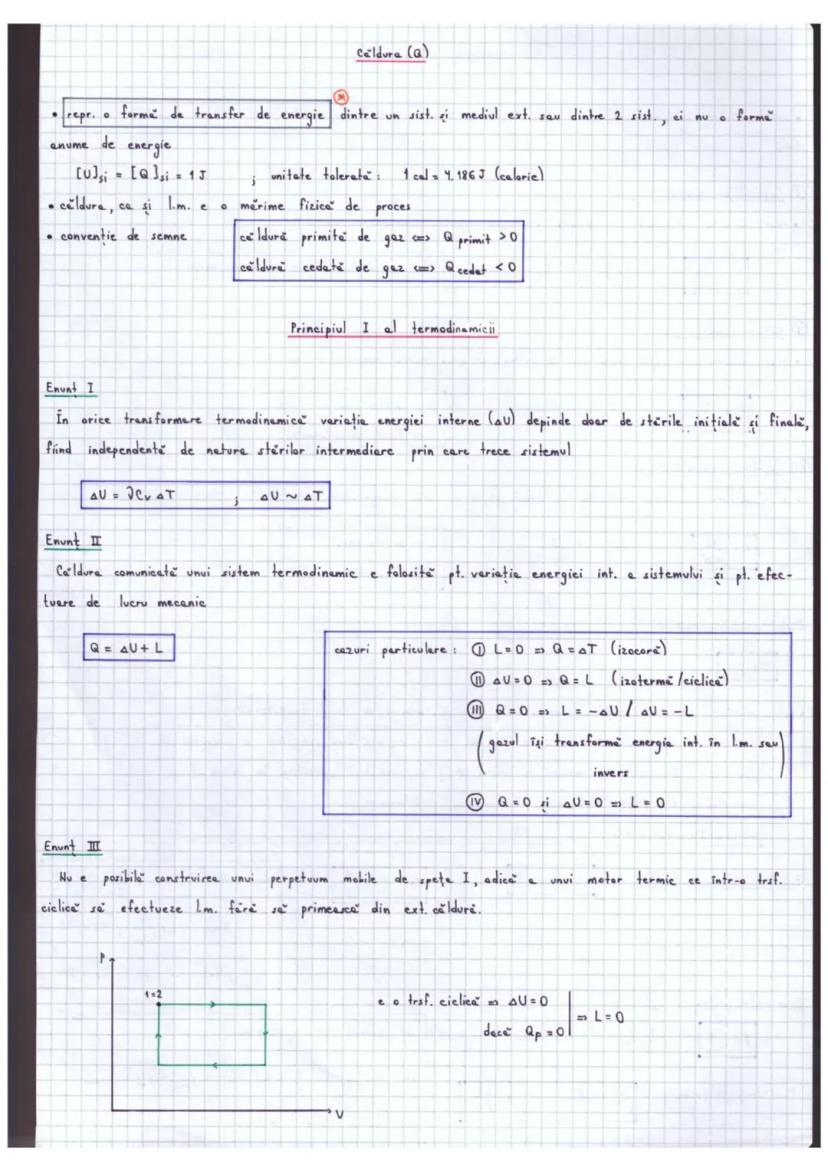 Căldura (Q)
• repr. o formă de transfer de energie dintre un sist. și mediul ext. sau dintre 2 sist., ci nu o formă
anume de energie
[U]si = [Q]si = 1 J ; unitate tolerată: 1 cal = 4.186 J (calorie)
• căldura, ca și l.m. e o mărime fizică de proces
• convenție de semne
căldură primită de gaz <=> Q primit > 0
căldură cedată de gaz <=> Q cedat < 0
Principiul I al termodinamicii
Enunț I
În orice transformare termodinamică variația energiei interne (ΔU) depinde doar de stările inițială și finală,
fiind independentă de natura stărilor intermediare prin care trece sistemul
ΔU = νCv ΔT ; ΔU ~ ΔT
Enunț II
Căldura comunicată unui sistem termodinamic e folosită pt. variația energiei int. a sistemului și pt. efec-
tuare de lucru mecanic
Q = ΔU + L
cazuri particulare: (I) L = 0 => Q = ΔT (izocoră)
(II) ΔU = 0 => Q = L (izotermă/ciclică)
(III) Q = 0 => L = -ΔU / ΔU = -L
(gazul își transformă energia int. în l.m. sau
invers)
(IV) Q = 0 și ΔU = 0 => L = 0
Enunț III
Nu e posibilă construirea unui perpetuum mobile de speța I, adică a unui motor termic ce într-o trsf.
ciclică să efectueze l.m. fără să primească din ext. căldură.
P
1=2
V
e o trsf. ciclică => ΔU = 0
dacă Qp = 0
=> L = 0